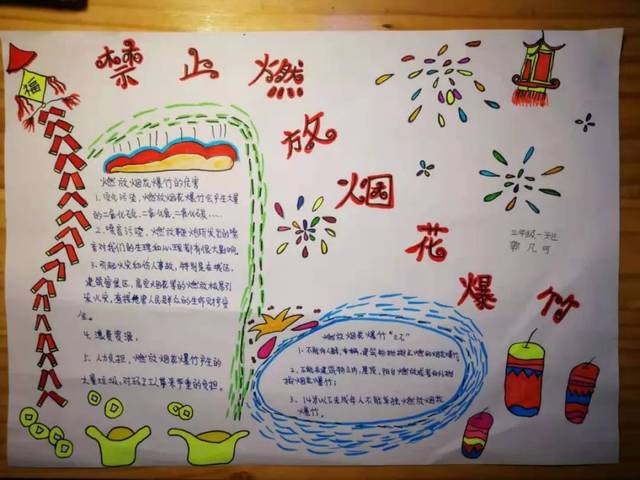 禁止燃放烟花爆竹
福
二年级一班
郭凡可
燃放烟花爆竹的危害
1、空气污染,燃放烟花爆竹会产生大量
的二氧化硫、二氧化氮、二氧化碳……
2、噪音污染,燃放鞭炮所发出的噪
音对我们的生理和心理都有很大影响。
3、引起火灾和伤人事故,特别是在城区,
建筑密集区,高空烟花等的燃放极易引
发火灾,直接危害人民群众的生命财产安
全。
4、浪费资源,
5、人力负担,燃放烟花爆竹产生的
大量垃圾,对环卫工人带来严重的负担。
燃放烟花爆竹"三不"
1、不能向人群、车辆、建筑物抛掷点燃的烟花爆竹。
2、不能在建筑物之内、屋顶、阳台燃放或者向外抛
掷烟花爆竹;
3、14岁以下未成年人不能单独燃放烟花
爆竹。